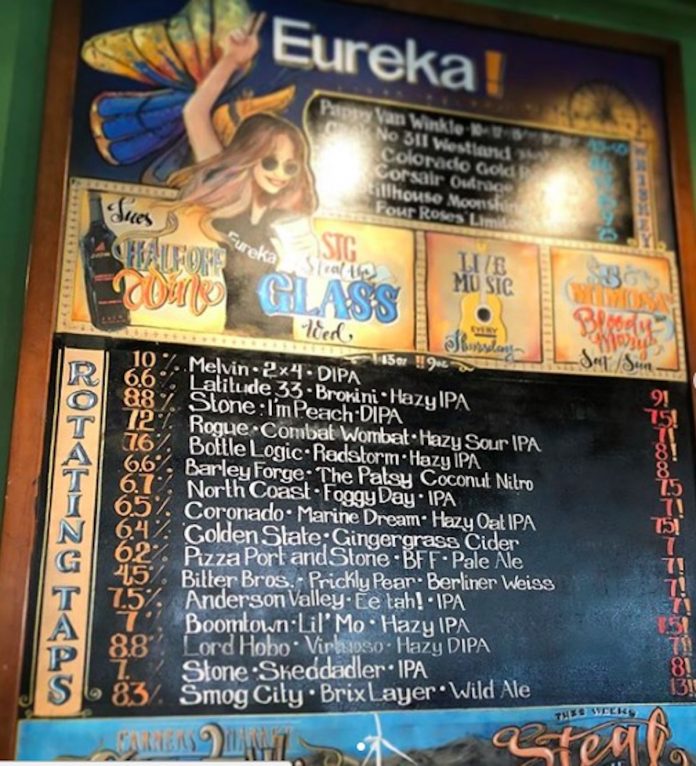 Eureka!
Pappy Van Winkle
No 311 Westland
Colorado Gold
Corsair Outrage
Four Roses
WHISKEY
Tues
HALF OFF
Wine
Eureka
STG
Steal the
GLASS
Wed
LIVE
MUSIC
EVERY
Thursday
$5
MIMOSA
Bloody
Mary
Sat/Sun
ROTATING TAPS
13oz 9oz
10% Melvin • 2x4 • DIPA 9!
6.6% Latitude 33 • Brokini • Hazy IPA 7.5!
8.8% Stone • I'm Peach • DIPA 7!
7.2% Rogue • Combat Wombat • Hazy Sour IPA 8
7.6% Bottle Logic • Radstorm • Hazy IPA 8
6.6% Barley Forge • The Patsy Coconut Nitro 7.5
6.7% North Coast • Foggy Day • IPA 7!
6.5% Coronado • Marine Dream • Hazy Oat IPA 7.5!
6.4% Golden State • Gingergrass Cider 7
6.2% Pizza Port and Stone • BFF • Pale Ale 7!
4.5% Bitter Bros. • Prickly Pear • Berliner Weiss 7!
7.5% Anderson Valley • Ee tah! • IPA 7!
7% Boomtown • Lil' Mo • Hazy IPA 7.5!
8.8% Lord Hobo • Virtuoso • Hazy DIPA 7!
7% Stone • Skeddadler • IPA 8!
8.3% Smog City • Brix Layer • Wild Ale 13!
FARMERS MARKET
THIS WEEKS
Steal